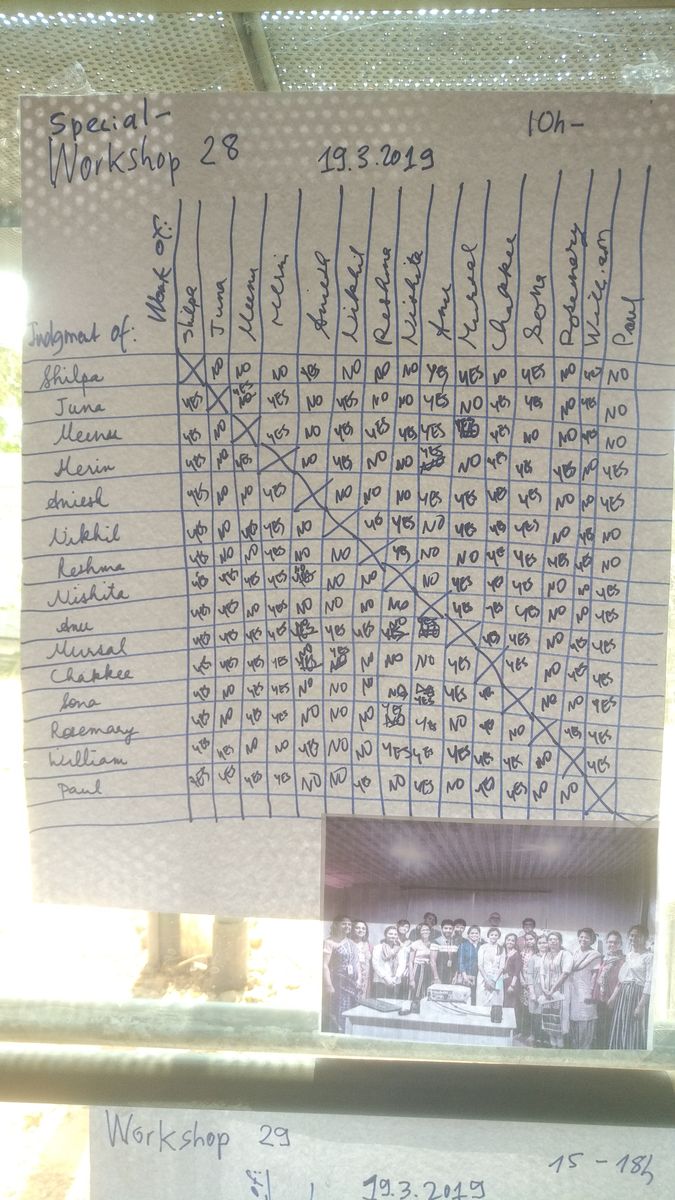 Special-
Workshop 28 19.3.2019 10h-
Judgment of: Work of: Shilpa Juna Meenu Merin Aniesh Nikhil Reshma Nishita Anu Mursal Chakkee Sona Rosemary William Paul
Shilpa NO NO NO YES NO NO NO YES YES NO YES NO YES NO
Juna YES NO YES NO NO YES NO YES YES NO YES NO
Meenu YES NO YES NO YES YES YES YES NO NO YES NO
Merin YES NO YES NO YES NO NO YES NO YES YES YES NO YES
Aniesh YES NO NO YES NO NO NO YES YES YES YES NO NO YES
Nikhil YES NO YES YES NO YES YES NO YES YES YES NO YES NO
Reshma YES NO NO YES NO YES NO NO YES YES YES YES NO
Nishita YES YES YES YES NO NO NO YES YES YES NO NO YES
Anu YES YES NO YES NO NO NO NO YES YES YES NO NO YES
Mursal YES YES YES YES YES YES YES YES NO YES YES
Chakkee YES YES YES YES NO NO NO YES YES NO YES YES
Sona YES NO YES YES NO NO NO NO YES YES YES NO NO YES
Rosemary YES NO YES YES NO NO NO YES NO YES NO YES YES
William YES YES NO NO YES NO NO YES YES YES YES YES NO YES
Paul YES YES YES YES NO NO YES NO YES NO YES YES NO NO
Workshop 29 15-18h
of: 19.3.2019